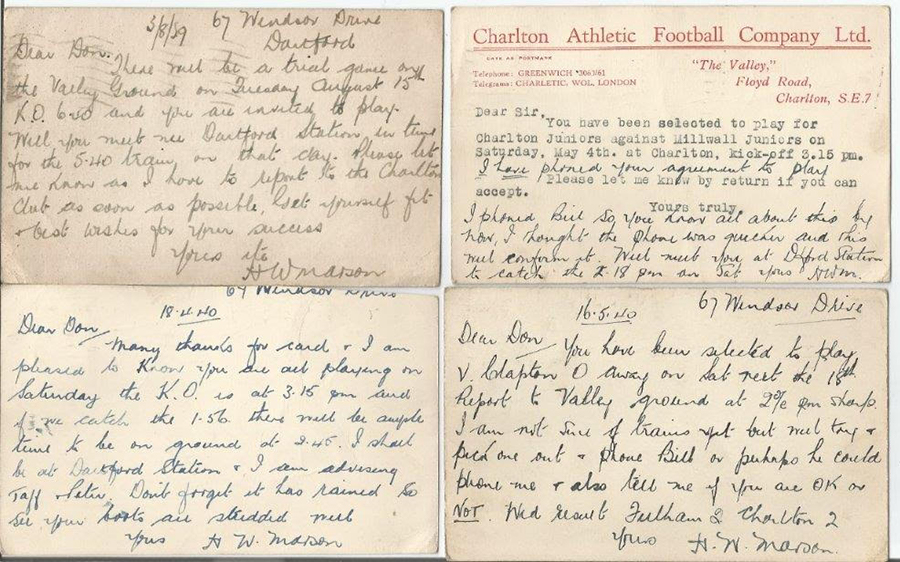 3/8/39 67 Windsor Drive
Dartford
Dear Don.
There will be a trial game on
the Valley Ground on Tuesday August 15th
K.O. 6-30 and you are invited to play.
Will you meet me Dartford Station, in time
for the 5-40 train, on that day. Please let
me know as I have to report to the Charlton
Club as soon as possible, Get yourself fit
+ best wishes for your success
yours etc
H W Marson
Charlton Athletic Football Company Ltd.
DATE AS POSTMARK
Telephone: GREENWICH 3063/61
Telegrams: CHARLETIC, WOL, LONDON
"The Valley,"
Floyd Road,
Charlton, S.E.7
Dear Sir,
You have been selected to play for
Charlton Juniors against Millwall Juniors on
Saturday, May 4th. at Charlton, kick-off 3.15 pm.
I have phoned your agreement to play
Please let me know by return if you can
accept.
Yours truly,
I phoned Bill so, you know all about this by
now, I thought the phone was quicker and this
will confirm it. Will meet you at Dtford Station
to catch the 2.18 pm on Sat yours HWM.
67 Windsor Drive
18.4.40
Dear Don,
Many thanks for card + I am
pleased to know you are all playing on
Saturday the K.O. is at 3.15 pm and
if we catch the 1-56 there will be ample
time to be on ground at 2.45. I shall
be at Dartford Station + I am advising
Taff + Peter. Don't forget it has rained so
see your boots are studded well
yours H. W. Marson
16.5.40 67 Windsor Drive
Dear Don,
You have been selected to play
v. Clapton O away on Sat next the 18th
Report to Valley ground at 2 pm sharp.
I am not sure of trains yet but will try +
pick one out + phone Bill or perhaps he could
phone me + also tell me if you are OK or
NOT. Wed result Fulham 2 Charlton 2
yours H. W. Marson.